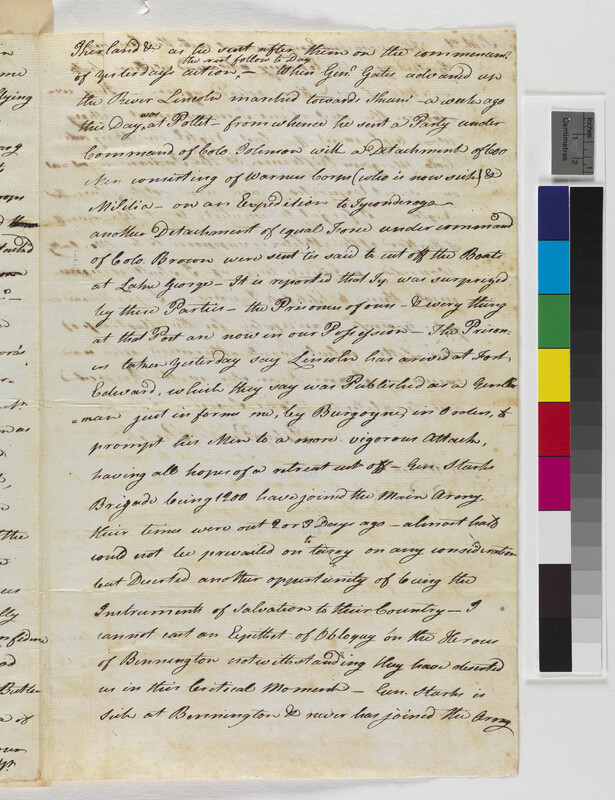 Thirland &c. as he sent after them on the commencmt.
of yesterday's action, — the rest follow to Day When Genl. Gates advanced up
the River Lincoln marched towards Skeens — a week ago
this Day was at Pollet — from whence he sent a Party under
Command of Colo. Johnson with a Detachment of 600
Men consisting of Warners Corps (who is now sick) &
Militia — on an Expedition to Tyconderoga
another Detachment of equal Force under command
of Colo. Brown were sent 'tis said to cut off the Boats
at Lake George — It is reported that Ty. was surprized
by these Parties — the Prisoners of ours — & every thing
at that Post are now in our Possession — The Prison-
ers taken yesterday say Lincoln has arrived at Fort
Edward, which they say was Published as a Gentle
=man just informs me, by Burgoyne, in Orders, to
prompt his Men to a more vigorous Attack,
having all hopes of a retreat cut off — Gen. Starks
Brigade being 1200 have joined the Main Army.
their times were out 2 or 3 Days ago — almost half
could not be prevailed on to tarry on any consideration
but Deserted another oppertunity of being the
Instruments of Salvation to their Country — I
cannot cast an Epithet of Obloquy on the Heroes
of Bennington notwithstanding they have deserted
us in this Critical Moment — Gen. Starks is
sick at Bennington & never has joined the Army
Centimetres